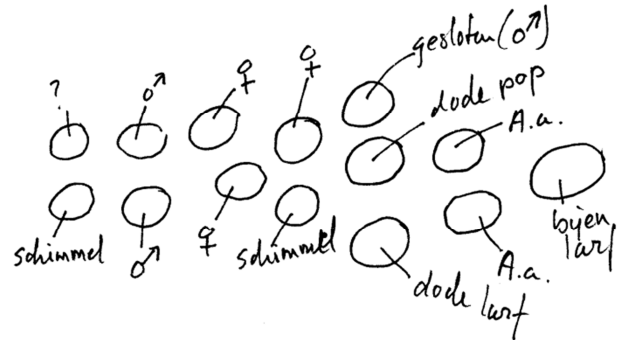 gesloten (♂)
? ♂ ♀ ♀ dode pop
A.a.
schimmel ♂ ♀ schimmel
dode larf
A.a.
bijen
larf